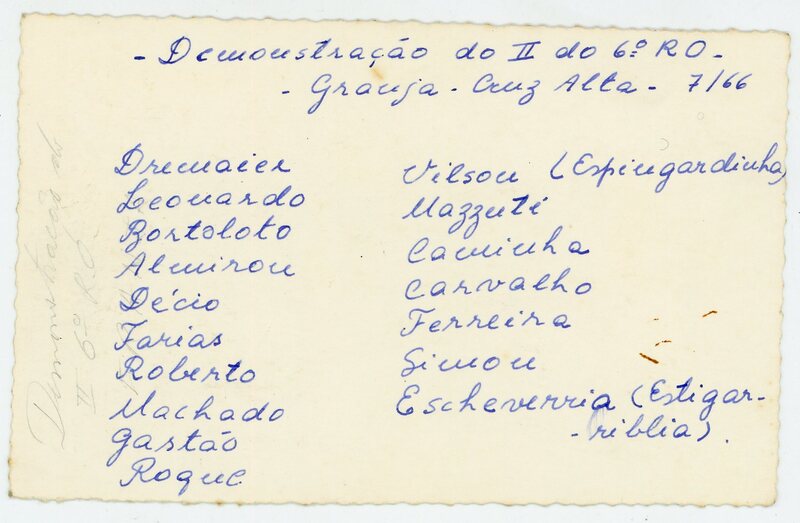 - Demonstração do II do 6º RO -
- Granja - Cruz Alta - 7/66
Dremaier
Leonardo
Bortoloto
Almiron
Décio
Farias
Roberto
Machado
Gastão
Roque
Vilson (Espingardinha)
Mazzuti
Caminha
Carvalho
Ferreira
Simon
Escheverria (Estigar-
-riblia).
Demonstração do
II 6º RO